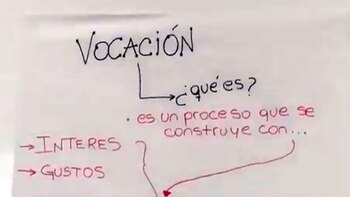 VOCACIÓN
¿qué es?
• es un proceso que se
construye con...
→ INTERES
→ GUSTOS